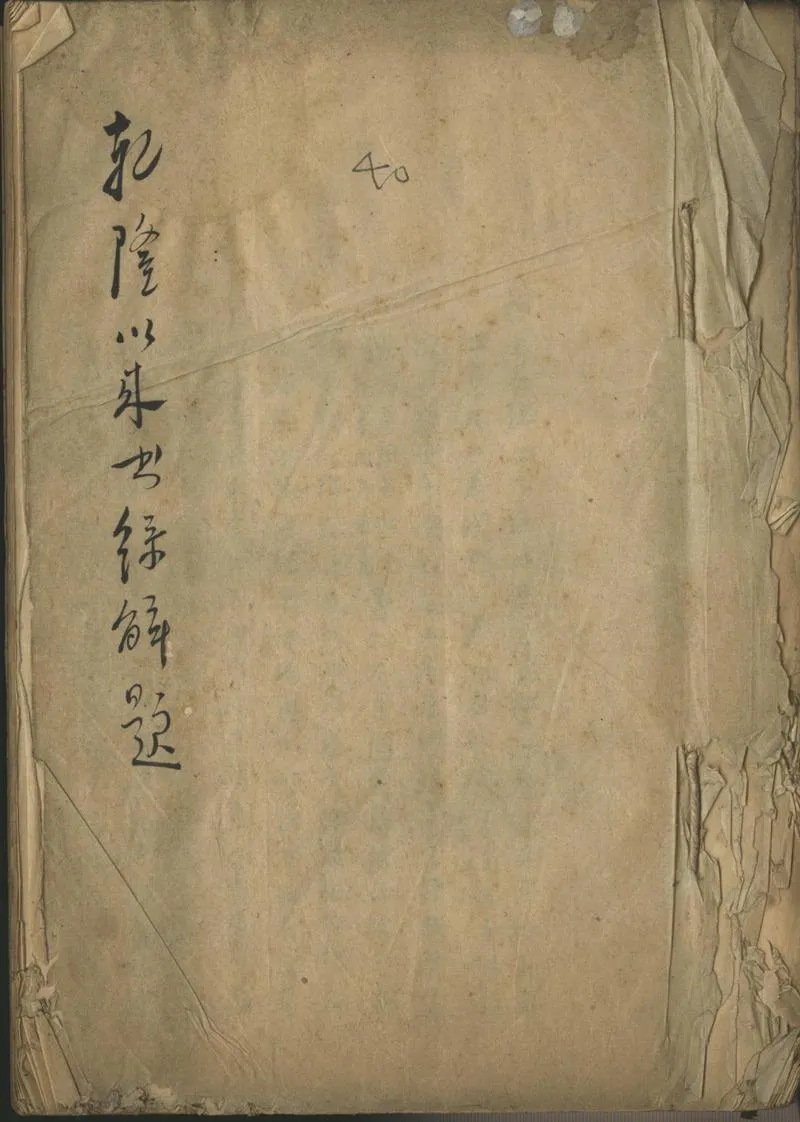 乾隆以来书録解題
40